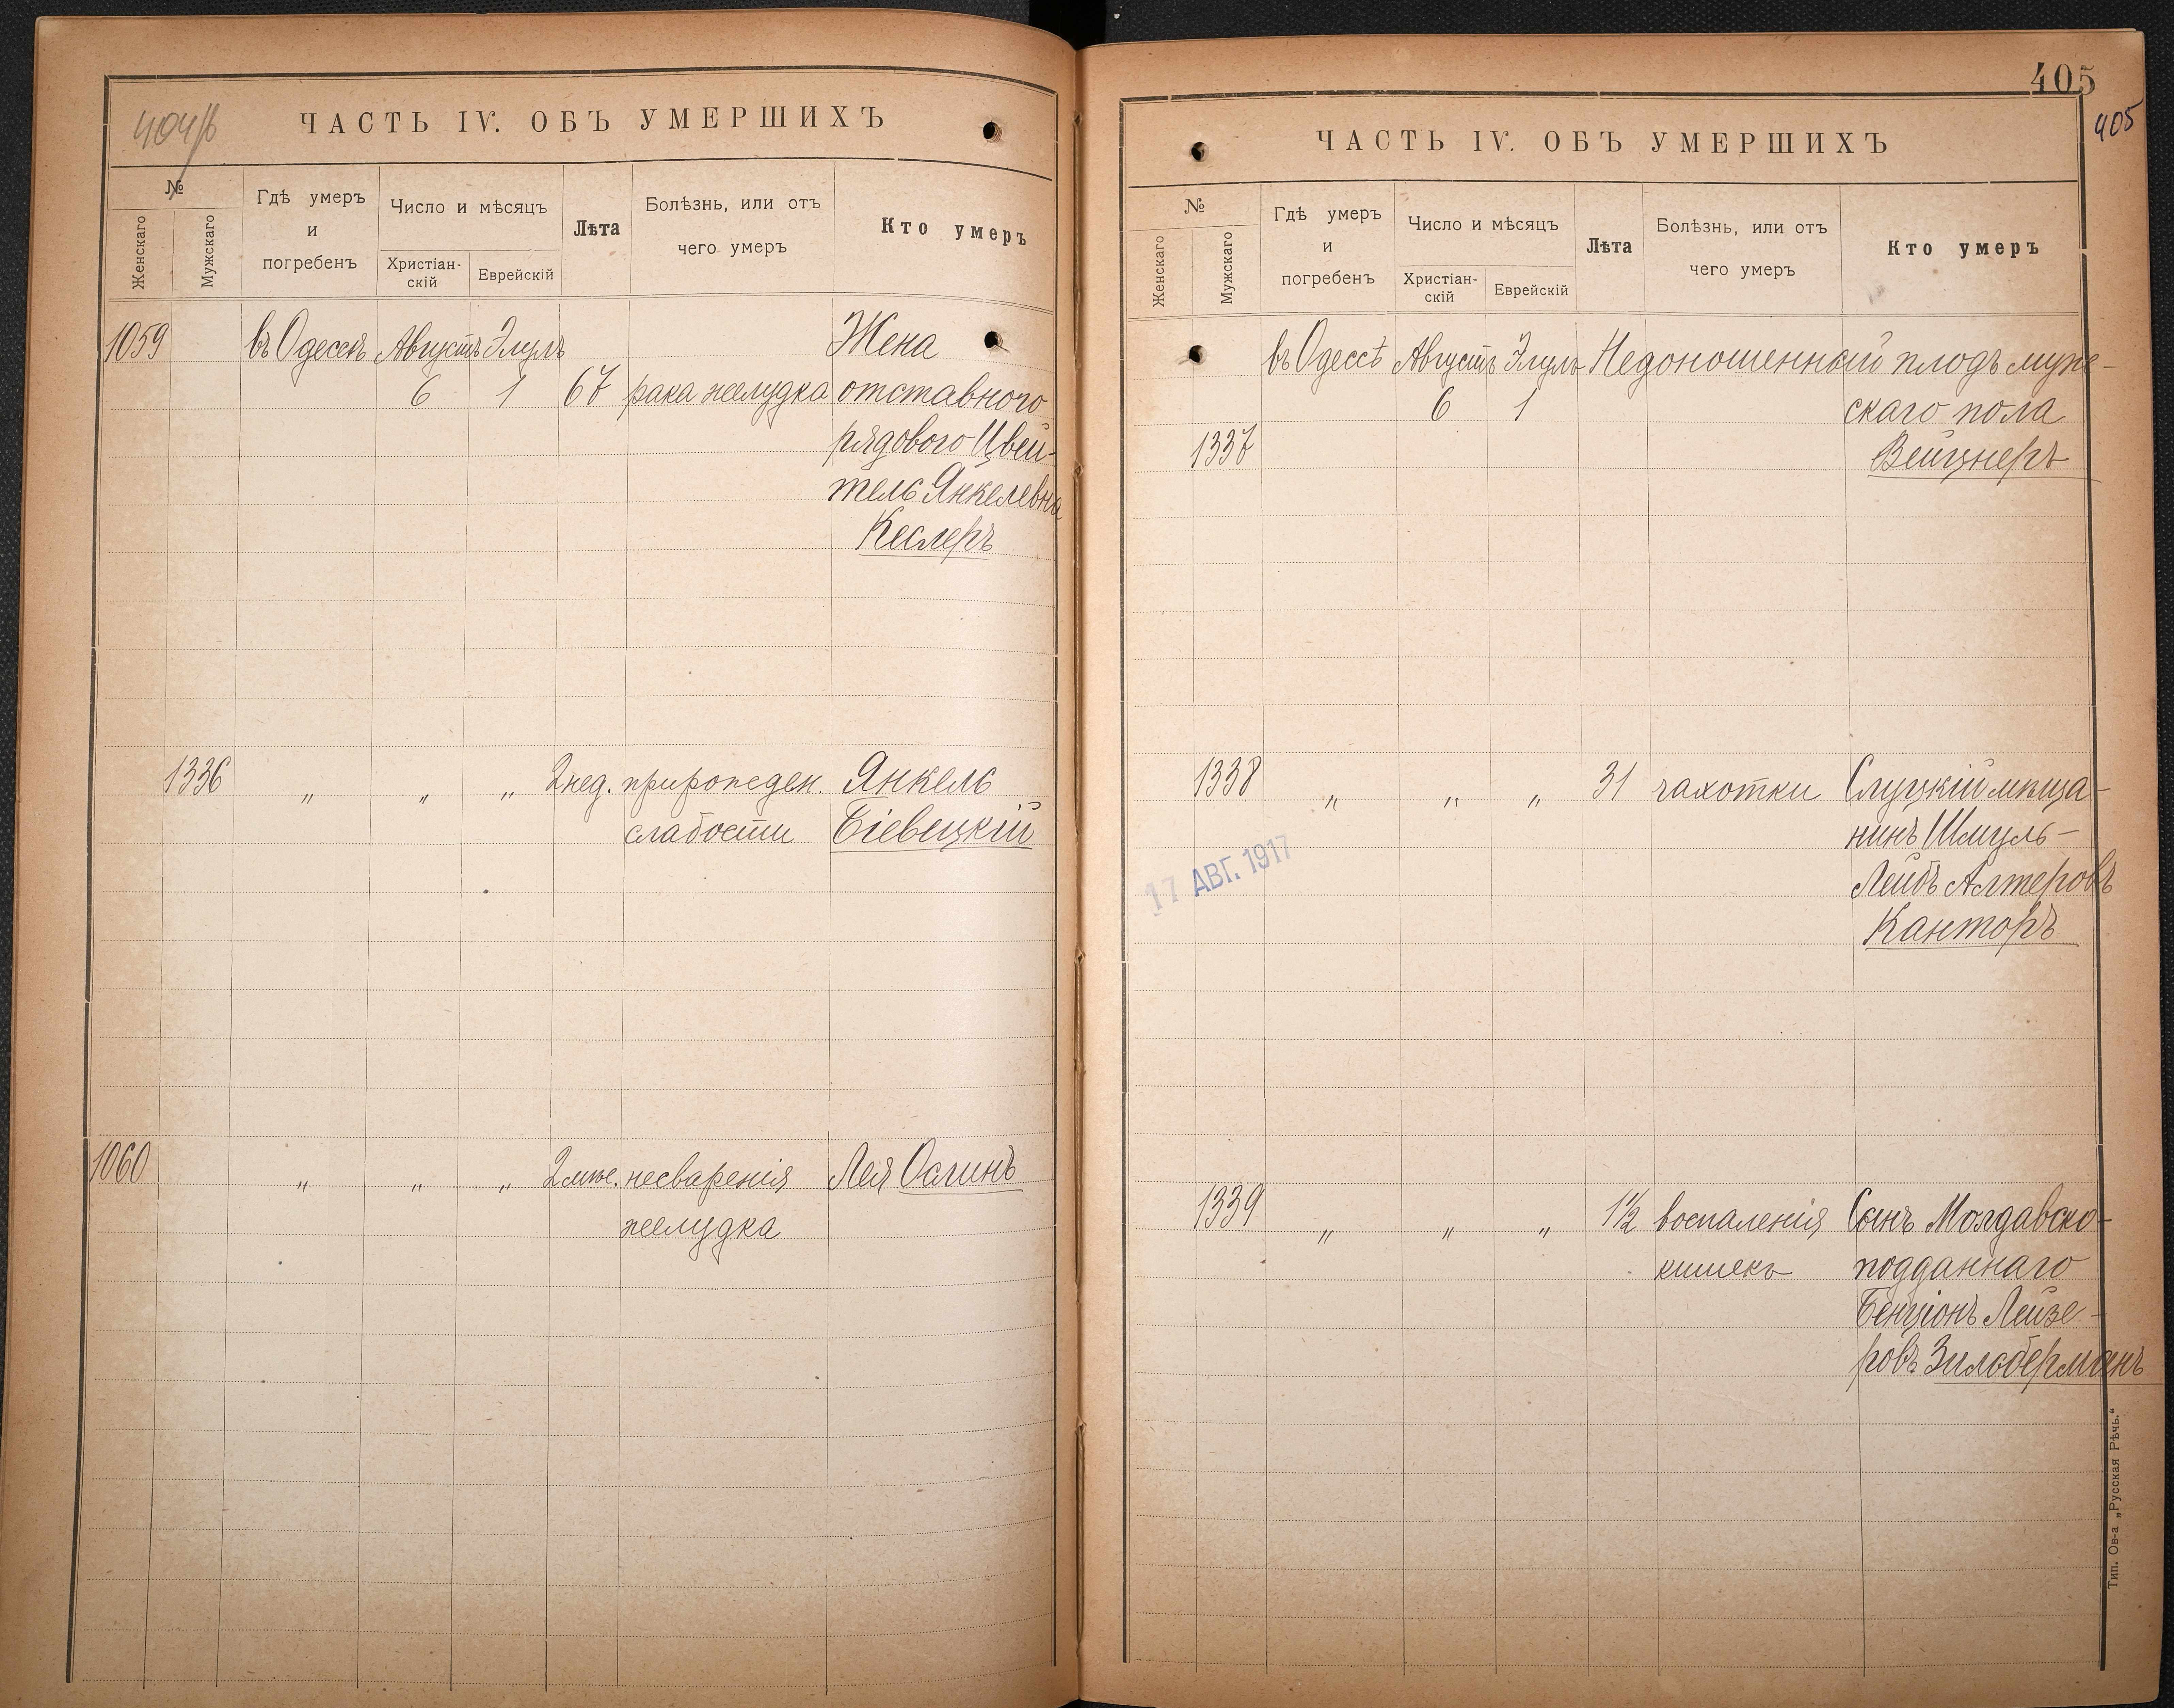 404/б
ЧАСТЬ IV. ОБЪ УМЕРШИХЪ
№
Женскаго
Мужскаго
Гдѣ умеръ
и
погребенъ
Число и мѣсяцъ
Христіан-
скій
Еврейскій
Лѣта
Болѣзнь, или отъ
чего умеръ
Кто умеръ
1059 въ Одессѣ Августъ Элулъ Жена
6 1 67 рака желудка отставного
рядового Цвей-
тель Янкелевна
Кеслеръ
1336 " " " 2 нед. прирожден. Янкель
слабости Біевецкій
1060 " " " 2 мѣс. несваренія Лея Осгинъ
желудка
405
405
ЧАСТЬ IV. ОБЪ УМЕРШИХЪ
№
Женскаго
Мужскаго
Гдѣ умеръ
и
погребенъ
Число и мѣсяцъ
Христіан-
скій
Еврейскій
Лѣта
Болѣзнь, или отъ
чего умеръ
Кто умеръ
въ Одессѣ Августъ Элулъ Недоношенный плодъ муже-
6 1 скаго пола
1337 Вейцнеръ
1338 " " " 31 чахотки Слуцкій мѣща-
нинъ Шмуль-
Лейбъ Алтеровъ
Канторъ
17 АВГ. 1917
1339 " " " 1½ воспаленія Сынъ Молдавско-
кишекъ подданнаго
Бенціонъ Лейзе-
ровъ Зильберманъ
Тип. Ов-а „Русская Рѣчь."